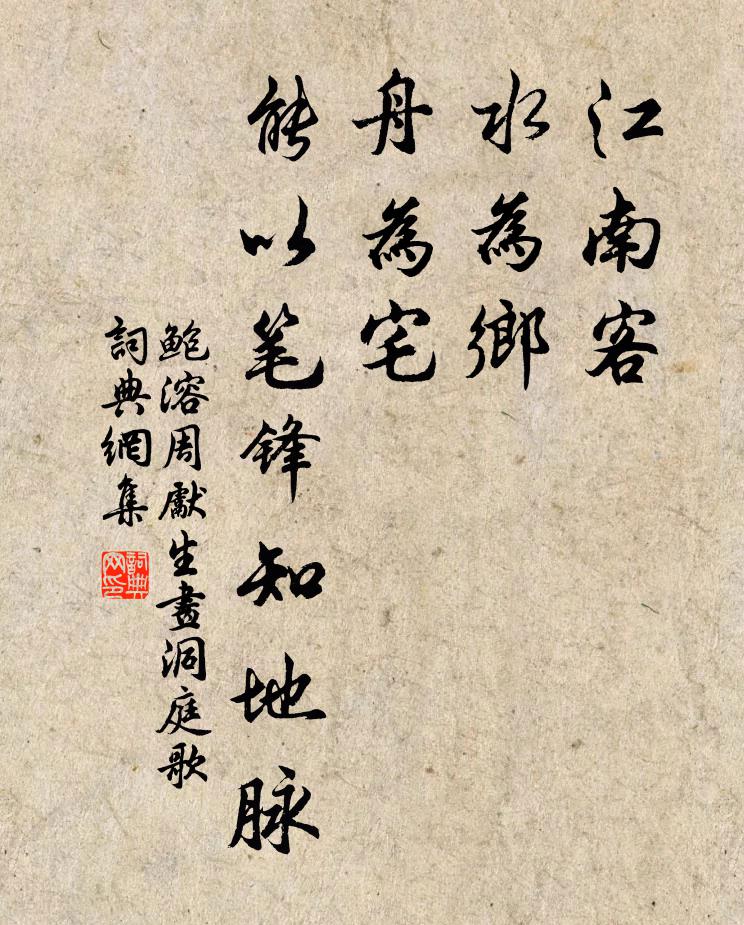 江南客
水為鄉
舟為宅
能以笔锋知地脉
鲍溶周獻生畫洞庭歌
詞典網集
詞典
网印